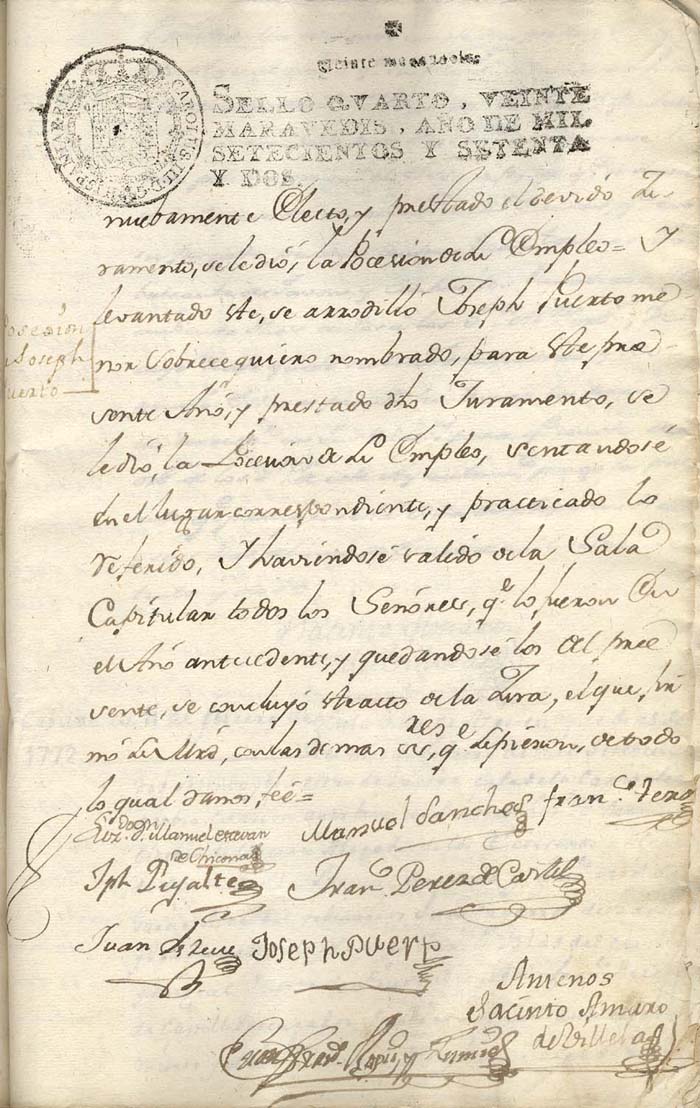 Veinte maravedis.
SELLO QVARTO, VEINTE
MARAVEDIS, AÑO DE MIL
SETECIENTOS Y SETENTA
Y DOS.
CAROLUS III D G HISP
nuebamente Electo, y prestado el devido Ju-
ramento, se le dió, la Pocecion de Empleo= Y
levantado este, se arrodilló Joseph Puerto me
nor Sobrecequiero nombrado, para este pre-
sente Año, y prestado dho Juramento, se
le dió, la Pocecion de Empleo, sentandosé
en el lugar correspondiente, y practicado lo
referido, Y haviendosé salido de la Sala
Capitular todos los Señores, q.e lo fueron En
el Año antecedente, y quedandosé los del pree
sente, se concluyó este acto de la Jura, el que, fir
mó con las demas res, q.e supieron, de todo
lo qual damos, feé=
Posesion
Joseph
Puerto
Manuel estevan
de Chicona
Manuel Sanches
Fran.co
Jph Puyalte
Fran.co Perez de
Juan Joseph Puerto
Antenos
Jacinto Amaro
de Villela
1772